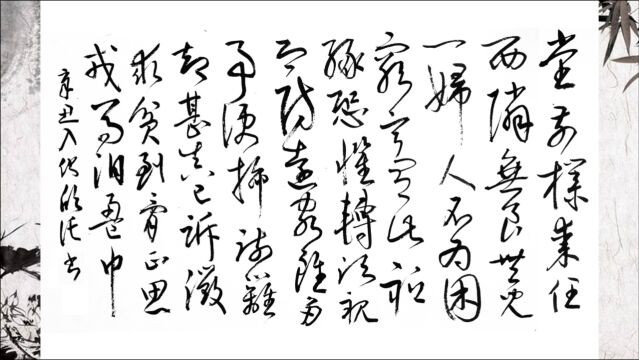 堂前撲棗任
西隣無食無兒
一婦人不為困
窮寧有此祇
緣恐懼轉須親
即防遠客雖多
事便插疏籬
却甚真已訴徵
求貧到骨正思
戎馬泪盈巾
辛丑入伏书